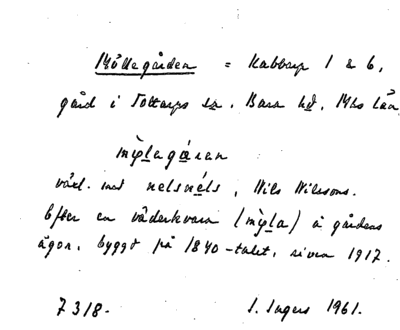 Möllegården = Kabbarp 1 & 6,
gård i Tottarps sn, Bara hd, Mhs län
mø̀lagá̱ran
växl. med nelsnéls, Nils Nilssons.
Efter en väderkvarn (mø̀la) å gårdens
ägor, byggd på 1840-talet, riven 1917.
7318. I. Ingers 1961.